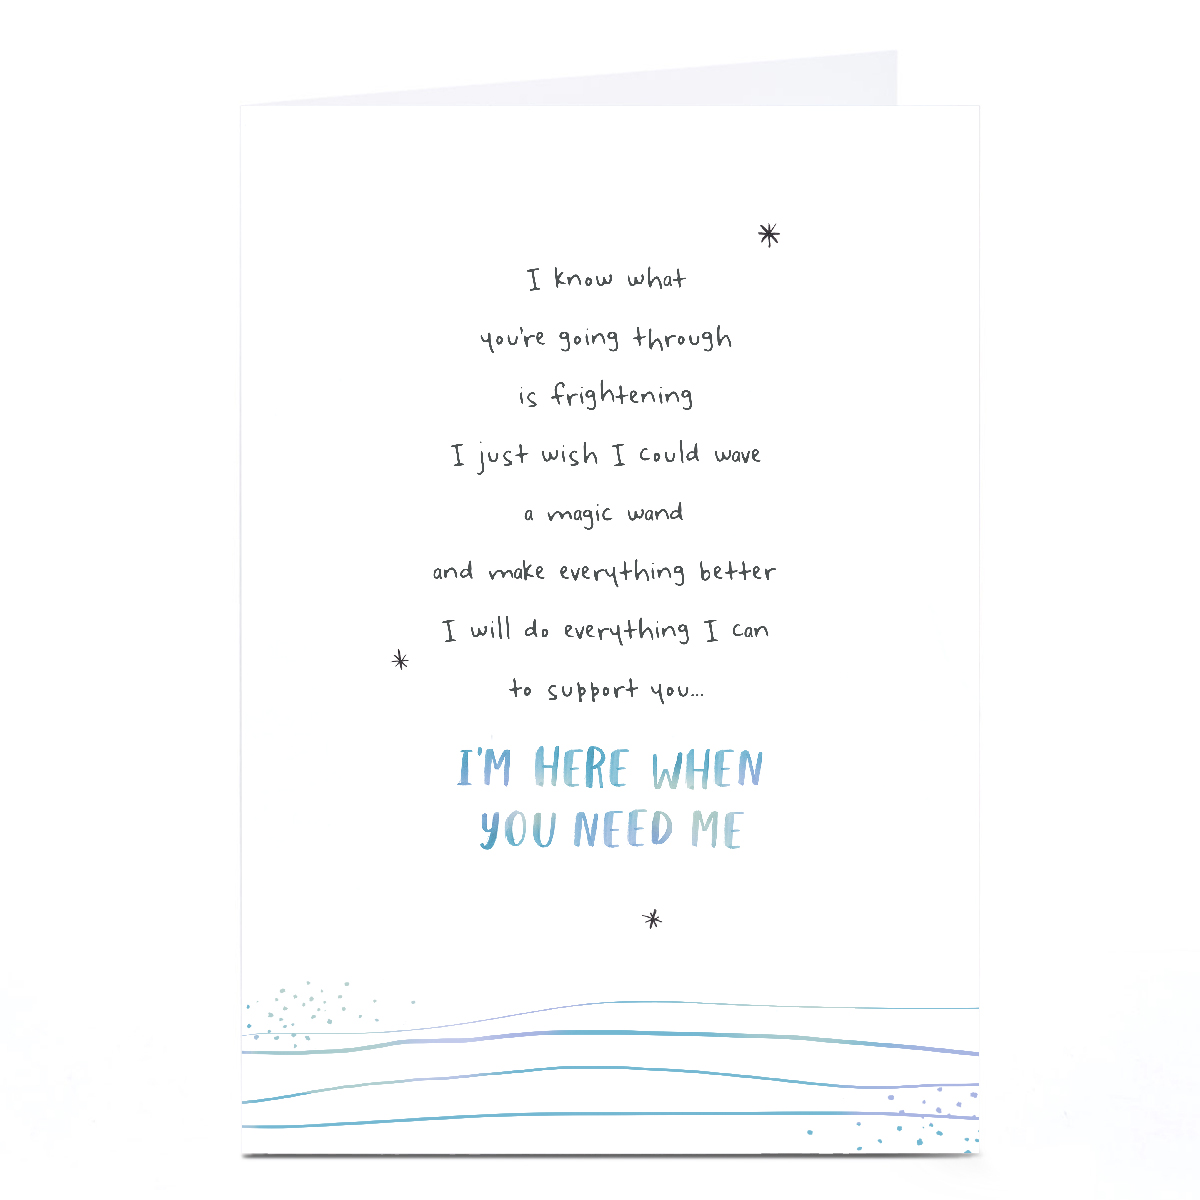 I know what
you're going through
is frightening
I just wish I could wave
a magic wand
and make everything better
I will do everything I can
to support you...
I'M HERE WHEN
YOU NEED ME